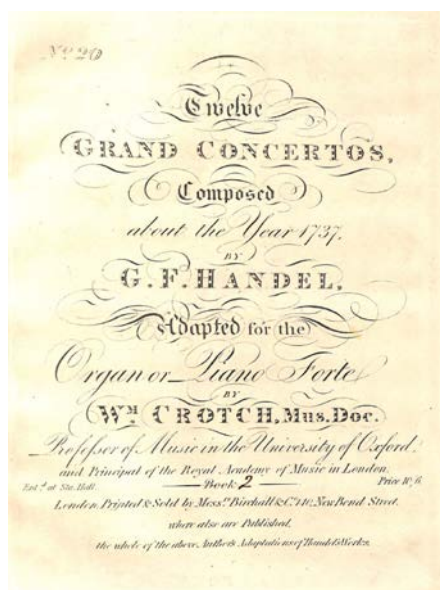 No. 20
Twelve
GRAND CONCERTOS,
Composed
about the Year 1737,
BY
G. F. HANDEL,
Adapted for the
Organ or Piano Forte
BY
WM. CROTCH, Mus. Doc.
Professor of Music in the University of Oxford
and Principal of the Royal Academy of Music in London.
Ent.d at Sta. Hall. Book 2 Price
London, Printed & Sold by Messrs. Birchall & Co. 140, New Bond Street,
where also are Published,
the whole of the above Author's Adaptations of Handel's Works.